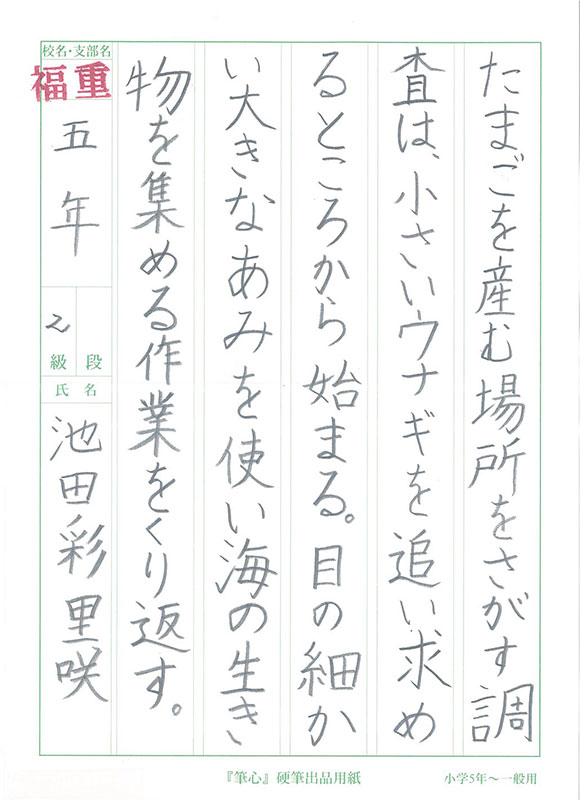 たまごを産む場所をさがす調
査は、小さいウナギを追い求め
るところから始まる。目の細か
い大きなあみを使い海の生き
物を集める作業をくり返す。
校名・支部名
福重
五年
2
級段
氏名
池田彩里咲
『筆心』硬筆出品用紙
小学5年〜一般用